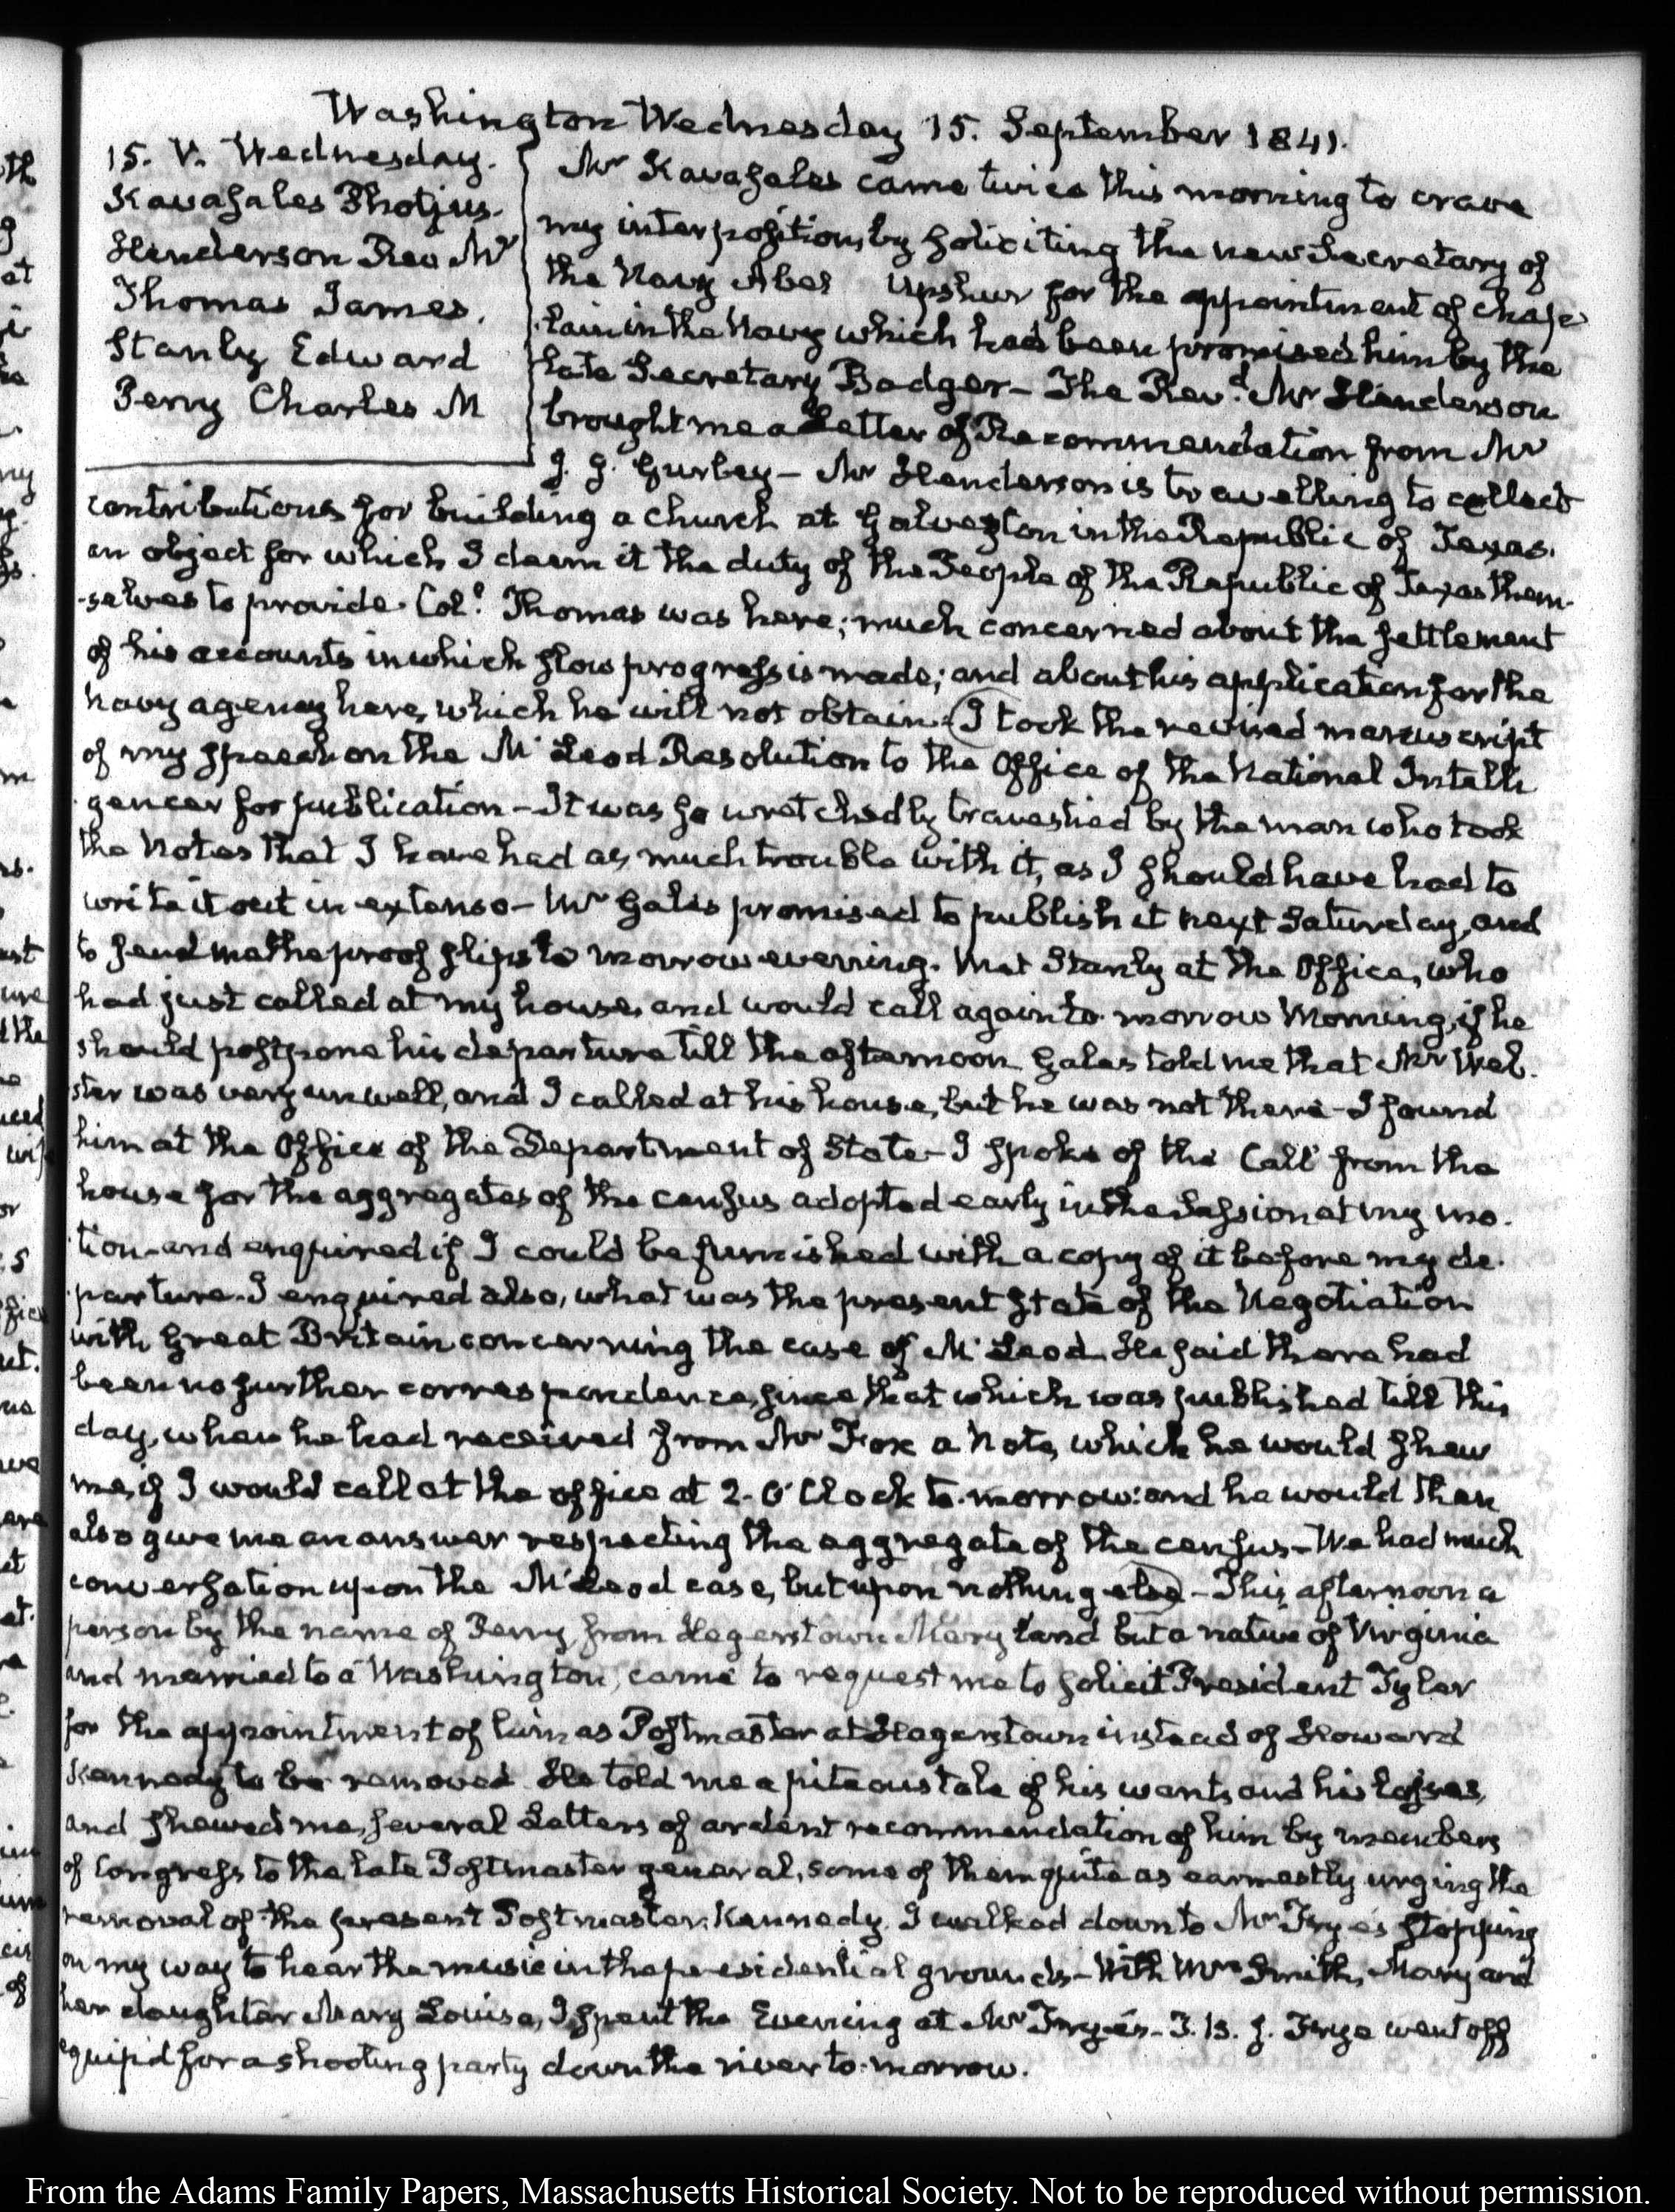 Washington Wednesday 15. September 1841.
15. V. Wednesday.
Kavasales Photius.
Henderson Rev Mr
Thomas James.
Stanly Edward
Perry Charles M
Mr Kavasales came twice this morning to crave
my interposition, by soliciting the new Secretary of
the Navy Abel Upshur for the appointment of chap
lain in the Navy which had been promised him by the
late Secretary Badger – The Revd. Mr Henderson
brought me a Letter of Recommendation from Mr
Gurley – Mr Henderson is travelling to collect
contributions for building a church at Galveston in the Republic of Texas.
an object for which I deem it the duty of the People of the Republic of Texas them-
-selves to provide. Coll. Thomas was here; much concerned about the settlement
of his accounts in which slow progress is made; and about his application for the
navy agency here, which he will not obtain. I took the revised manuscript
of my speech on the Mc.Leod Resolution to the Office of the National Intelli
gencer for publication – It was so wretchedly travestied by the man who took
the Notes that I have had as much trouble with it, as I should have had to
write it out in extenso – Mr Gales promised to publish it next Saturday, and
to send me the proof slips to morrow evening. Met Stanly at the Office, who
had just called at my house, and would call again to-morrow Morning, if he
should postpone his departure till the afternoon. Gales told me that Mr Web-
ster was very unwell, and I called at his house, but he was not there – I found
him at the Office of the Department of State – I spoke of the Call from the
house for the aggregates of the census adopted early in the Session at my mo-
tion – and enquired if I could be furnished with a copy of it before my de-
parture. I enquired also, what was the present state of the Negotiation
with Great Britain concerning the case of Mc.Leod. He said there had
been no further correspondence, since that which was published till this
day, when he had received from Mr Fox a Note, which he would shew
me, if I would call at the office at 2. O'Clock to-morrow: and he would then
also give me an answer respecting the aggregate of the census – We had much
conversation upon the McLeod case, but upon nothing else – This afternoon a
person by the name of Perry from Hagerstown Maryland but a native of Virginia
and married to a Washington, came to request me to solicit President Tyler
for the appointment of him as Postmaster at Hagerstown instead of Howard
Kennedy to be removed. He told me a piteous tale of his wants and his losses,
and shewed me, several Letters of ardent recommendation of him by members
of Congress to the late Postmaster general, some of them quite as earnestly urging the
removal of the present Postmaster Kennedy. I walked down to Mr Frye's stopping
on my way to hear the music in the presidential grounds – With Mrs Smith, Mary and
her daughter Mary Louisa, I spent the Evening at Mr Frye's – T. B. J. Frye went off
equip'd for a shooting party down the river to-morrow.
From the Adams Family Papers, Massachusetts Historical Society. Not to be reproduced without permission.